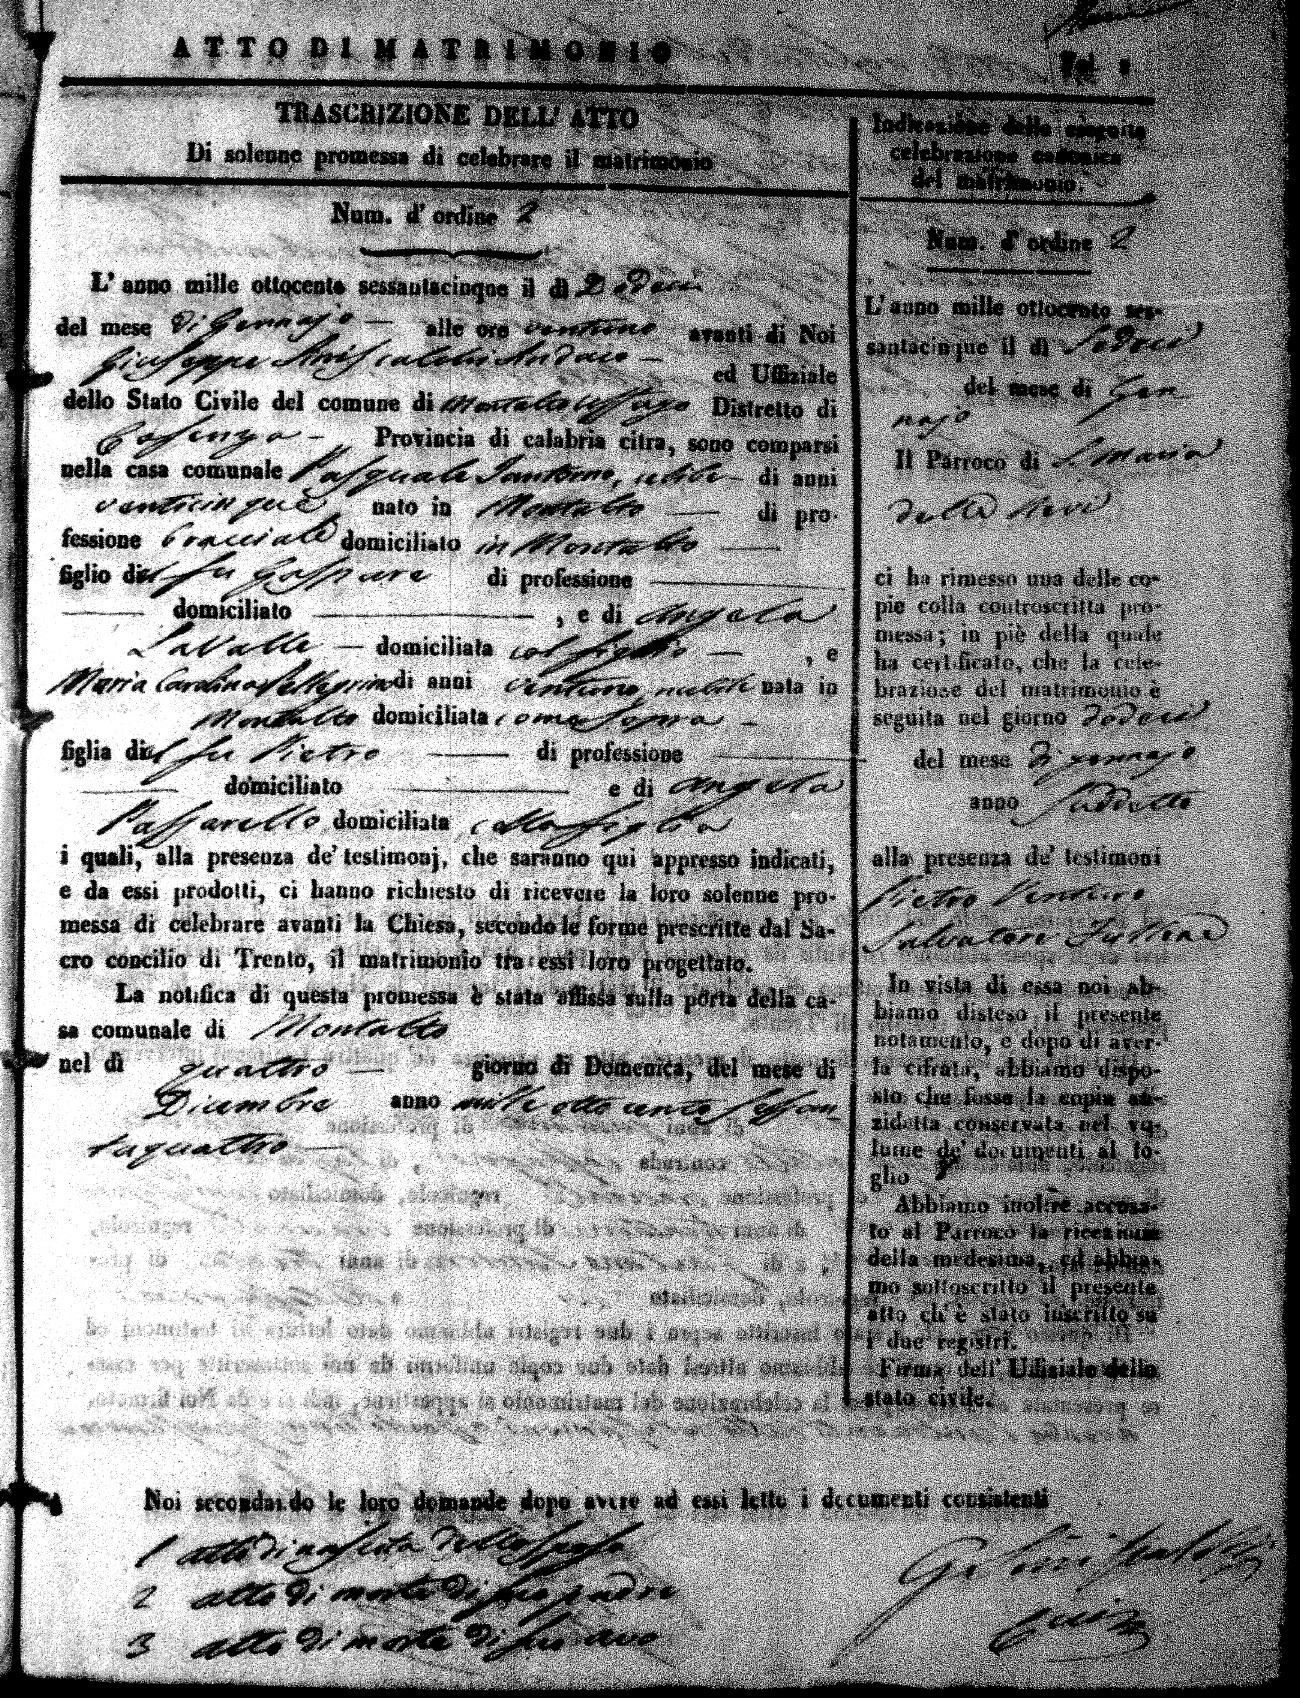 ATTO DI MATRIMONIO
Fol. 2
TRASCRIZIONE DELL' ATTO
Di solenne promessa di celebrare il matrimonio
Num. d' ordine 2
L' anno mille ottocento sessantacinque il dì Dodeci
del mese di Gennajo — alle ore ventuno avanti di Noi
Giuseppe Sindaco — ed Uffiziale
dello Stato Civile del comune di Montalto Uffugo Distretto di
Cosenza - Provincia di calabria citra, sono comparsi
nella casa comunale Pasquale Santoro, celibe - di anni
venticinque nato in Montalto — di pro-
fessione bracciale domiciliato in Montalto —
figlio del fu Gaspare di professione —
— domiciliato — , e di Angela
LaValle — domiciliata col figlio — , e
Maria Carolina Pellegrino di anni ventuno, nubile nata in
Montalto domiciliata come sopra -
figlia del fu Pietro — di professione —
— domiciliato — e di Angela
Passarello domiciliata colla figlia
i quali, alla presenza de' testimonj, che saranno qui appresso indicati,
e da essi prodotti, ci hanno richiesto di ricevere la loro solenne pro-
messa di celebrare avanti la Chiesa, secondo le forme prescritte dal Sa-
cro concilio di Trento, il matrimonio tra essi loro progettato.
La notifica di questa promessa è stata affissa sulla porta della ca-
sa comunale di Montalto
nel dì quattro — giorno di Domenica, del mese di
Dicembre anno mille otto cento sessan
taquattro —
Indicazione della eseguita
celebrazione canonica
del matrimonio.
Num. d' ordine 2
L' anno mille ottocento ses-
santacinque il dì Dodeci
del mese di Gen
najo
Il Parroco di S. Maria
della Neve
ci ha rimesso una delle co-
pie colla controscritta pro-
messa; in piè della quale
ha certificato, che la cele-
brazione del matrimonio è
seguita nel giorno dodeci
del mese di gennajo
anno suddetto
alla presenza de' testimoni
Pietro
Salvatore
In vista di essa noi ab-
biamo disteso il presente
notamento, e dopo di aver-
la cifrata, abbiamo dispo-
sto che fosse la copia an-
zidetta conservata nel vo-
lume de' documenti al fo-
glio
Abbiamo inoltre accusa-
to al Parroco la ricezione
della medesima, ed abbia-
mo sottoscritto il presente
atto ch' è stato inscritto su
i due registri.
Firma dell' Uffiziale dello
stato civile.
Noi secondando le loro domande dopo avere ad essi letto i documenti consistenti
1 atto di nascita dello sposo
2 atto di morte di suo padre
3 atto di morte di suo avo